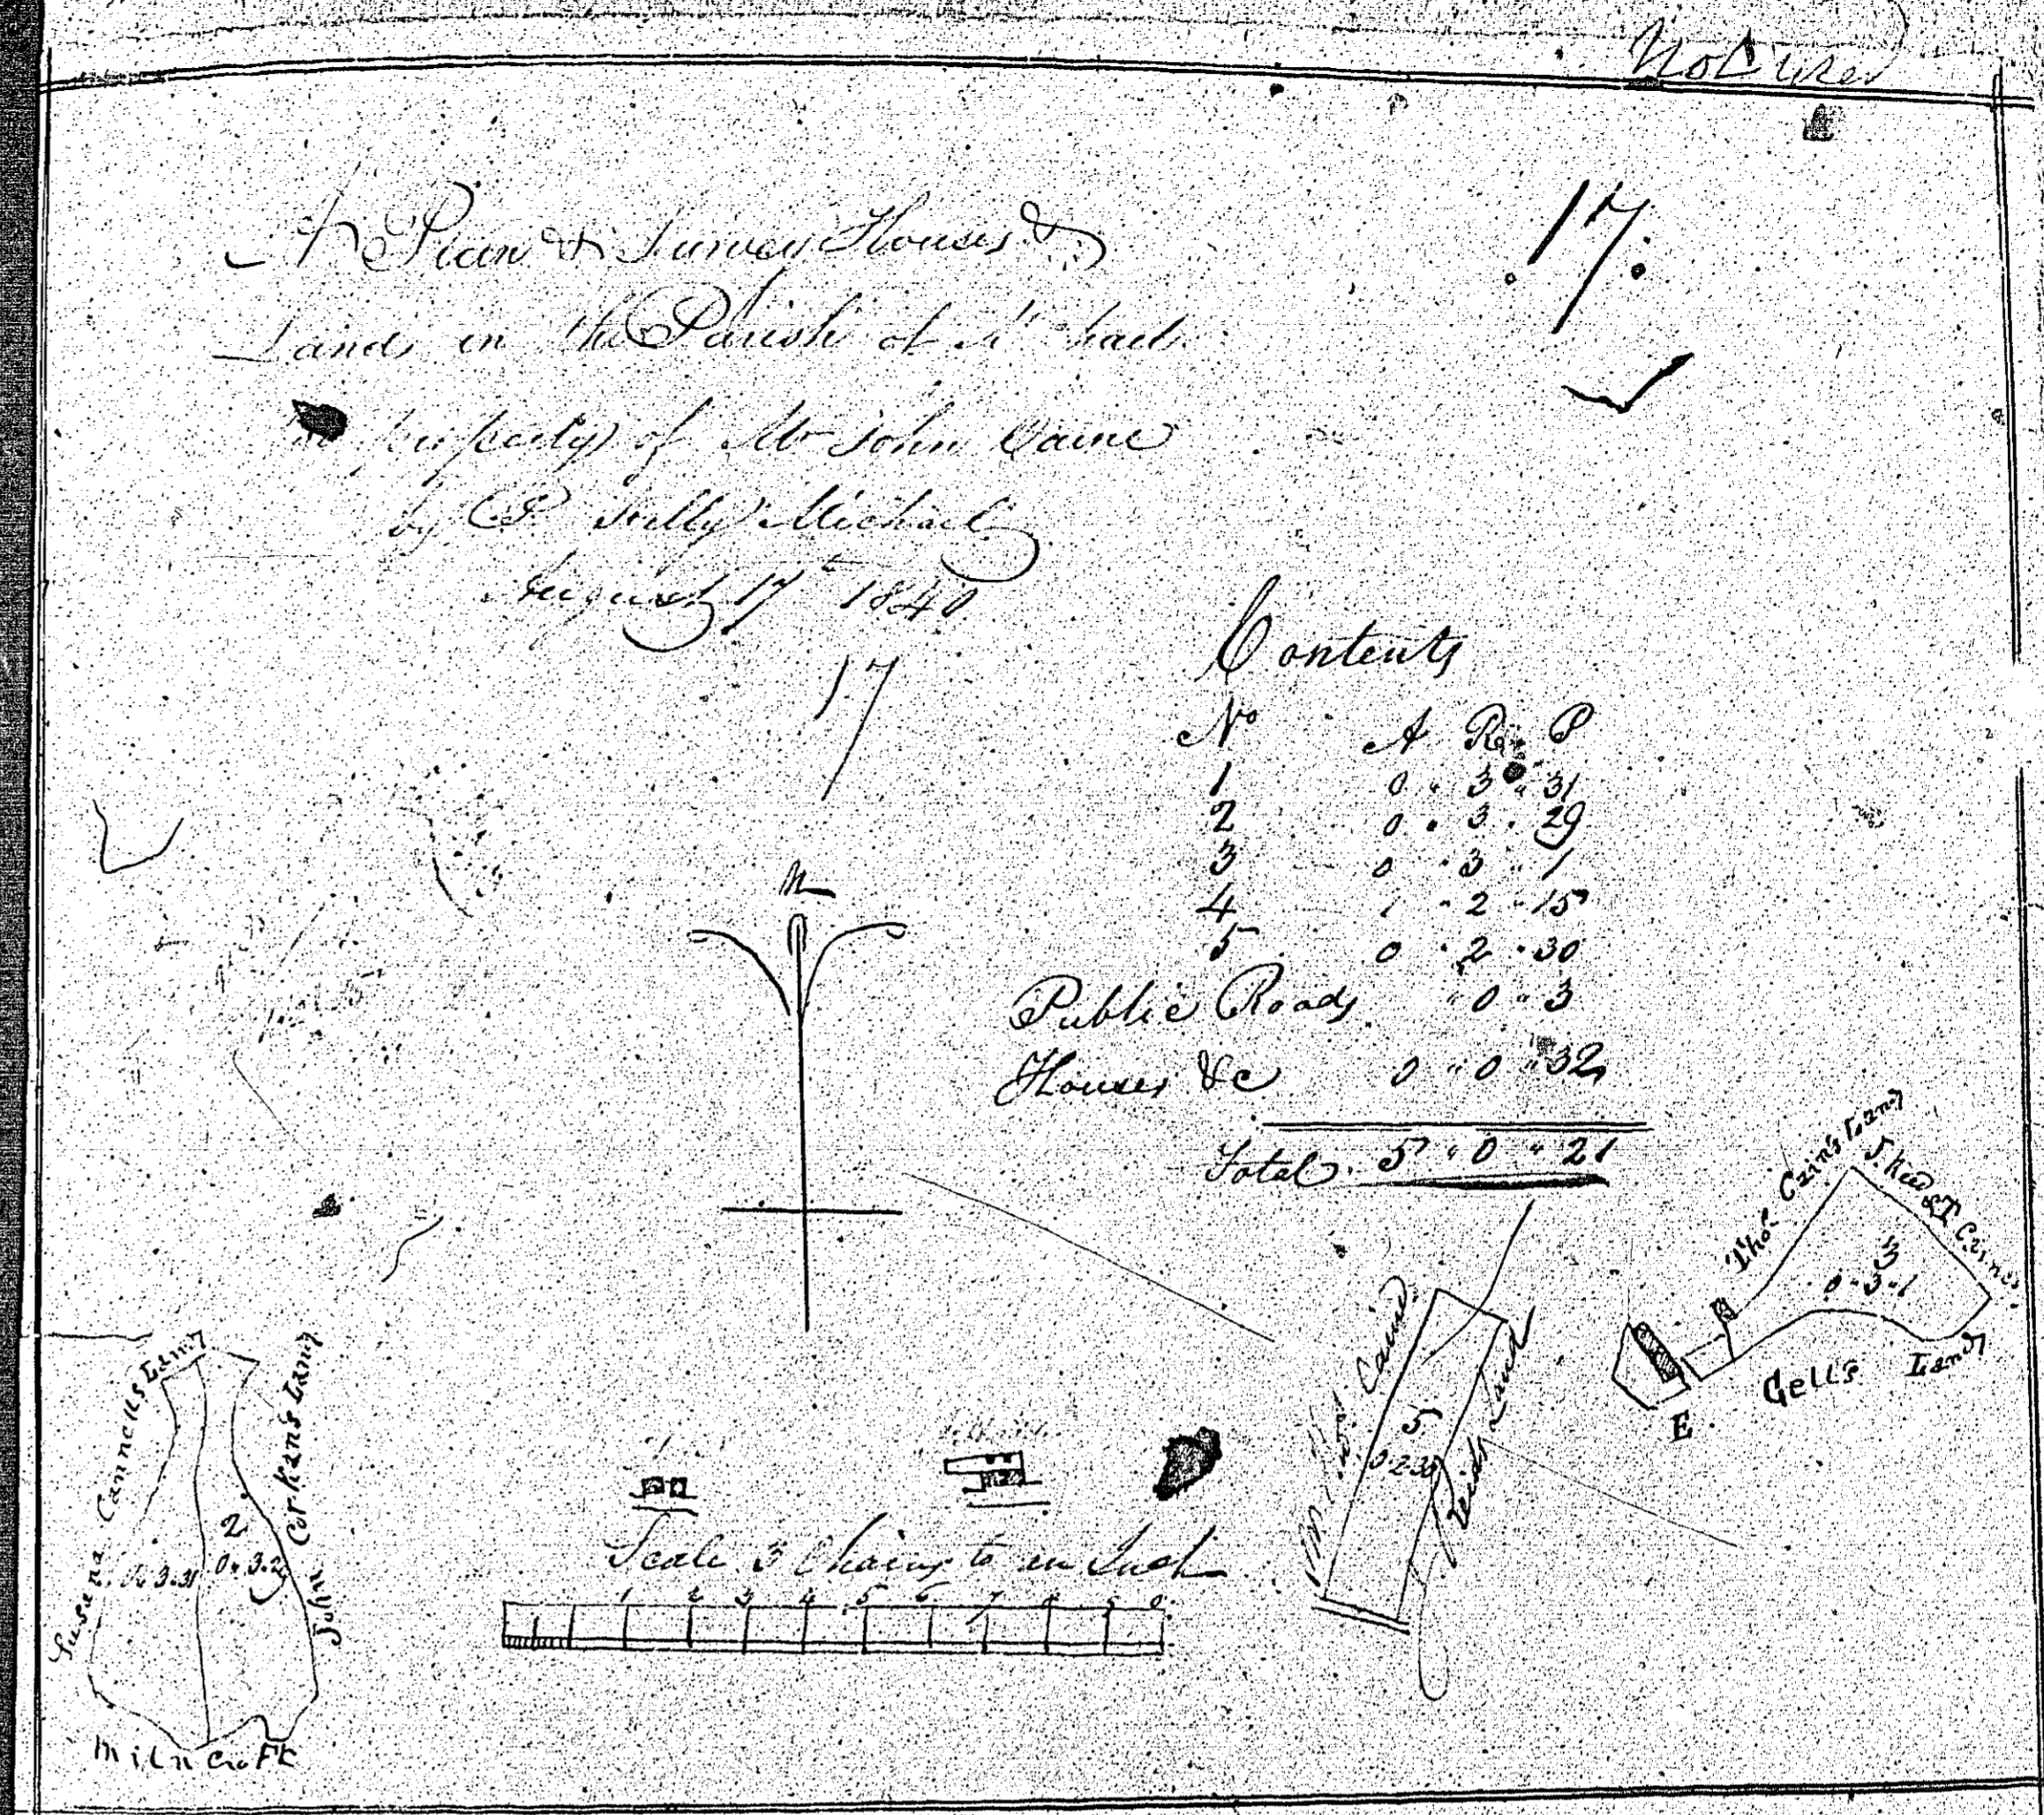 Not used
17
A Plan & Survey Houses &
Lands in the Parish of Michael
The property of Mr John Caine
by P. Kelly Michael
August 17th 1840
17
Contents
No A R P
1 0 " 3 " 31
2 0 " 3 " 29
3 0 " 3 " 1
4 1 " 2 " 15
5 0 " 2 " 30
Public Roads " 0 " 3
Houses &c 0 " 0 " 32
Total 5 " 0 " 21
N
Thos Cain's Land
J. Keed & T Caines
3
0 " 3 " 1
Gells Land
E
Caine
5
0 2 30
Reids Land
Susana Cannells Land
John Corkans Land
0 " 3 " 31
2
0 " 3 " 29
Miln Croft
Scale 3 Chains to an Inch
1 2 3 4 5 6 7 8 9 0